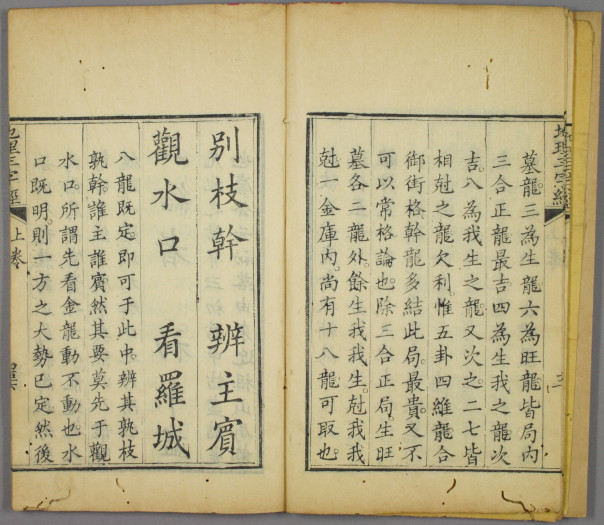 地理三字經
墓龍三為生龍六為旺龍皆局內
三合正龍最吉四為生我之龍次
吉八為我生之龍又次之二七皆
相尅之龍欠利惟五卦四維龍合
御街格幹龍多結此局最貴又不
可以常格論也除三合正局生旺
墓各二龍外餘生我我生尅我我
尅一金庫內尚有十八龍可取也
別枝幹 辨主賓
觀水口 看羅城
八龍既定即可于此中辨其孰枝
孰幹誰主誰賓然其要莫先于觀
水口所謂先看金龍動不動也水
口既明則一方之大勢已定然後
地理三字經 上卷